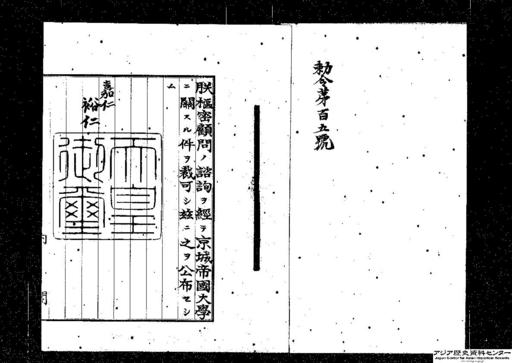 勅令第百五號
朕樞密顧問ノ諮詢ヲ經テ京城帝國大學
ニ關スル件ヲ裁可シ玆ニ之ヲ公布セシ
ム
嘉仁
裕仁
天皇
御璽
アジア歴史資料センター
Japan Center for Asian Historical Records